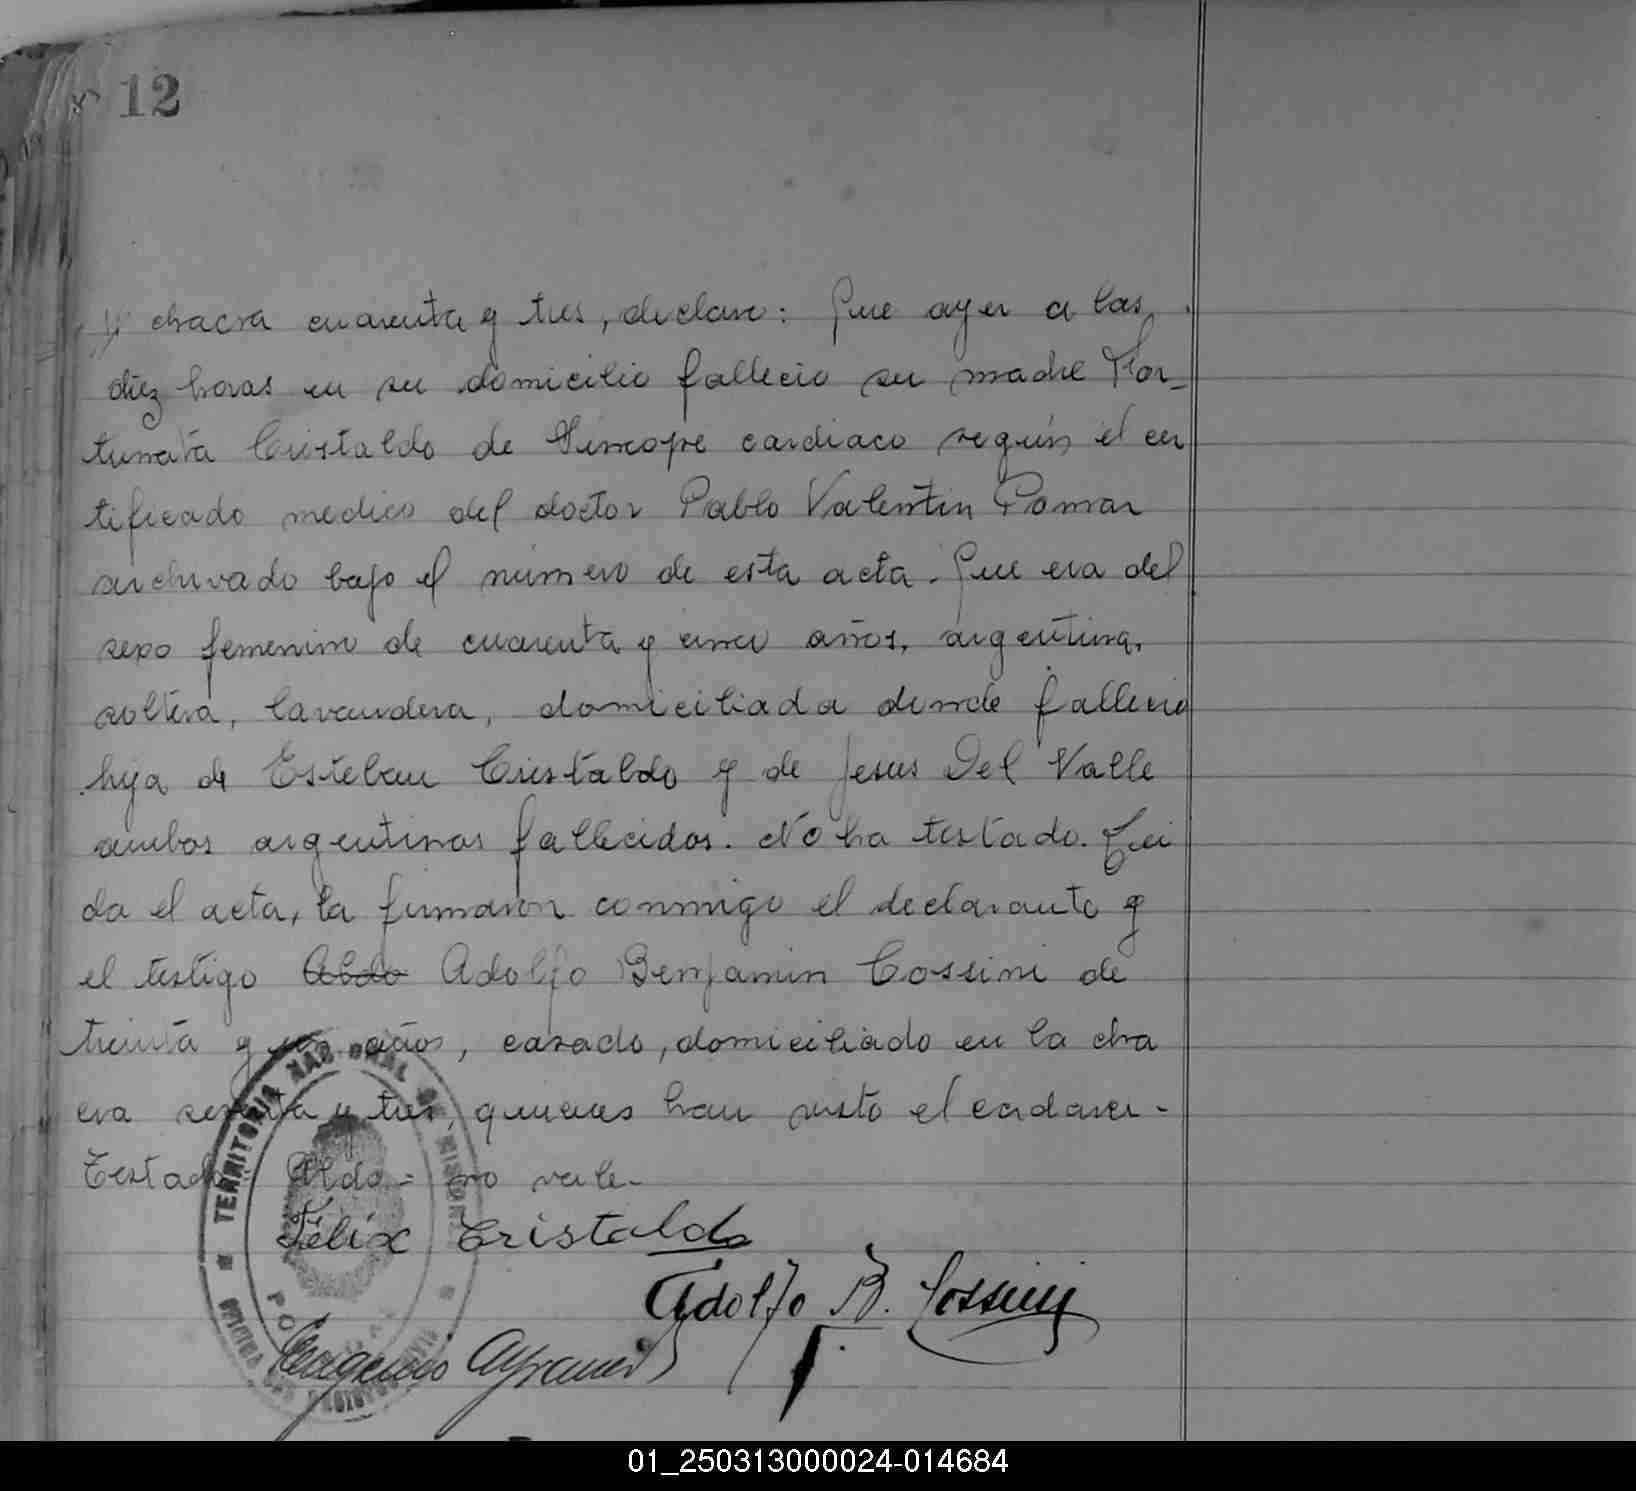 12
y chacra cuarenta y tres, declaro: Que ayer a las
diez horas en su domicilio fallecio su madre For-
tunata Cristaldo de Sincope cardiaco según el cer
tificado medico del doctor Pablo Valentin Pomar
archivado bajo el número de esta acta. Que era del
sexo femenino de cuarenta y cinco años, argentina,
soltera, lavandera, domiciliada donde fallecio
hija de Esteban Cristaldo y de Jesus Del Valle
ambos argentinos fallecidos. No ha testado. Lei
da el acta, la firmaron conmigo el declarante y
el testigo Aldo Adolfo Benjamin Cossini de
treinta y años, casado, domiciliado en la cha
cra sesenta y tres, quienes han visto el cadaver-
Testado Aldo - no vale-
Félix Cristaldo
Adolfo B. Cossini
Eugenio
TERRITORIO NACIONAL DE MISIONES
01_250313000024-014684